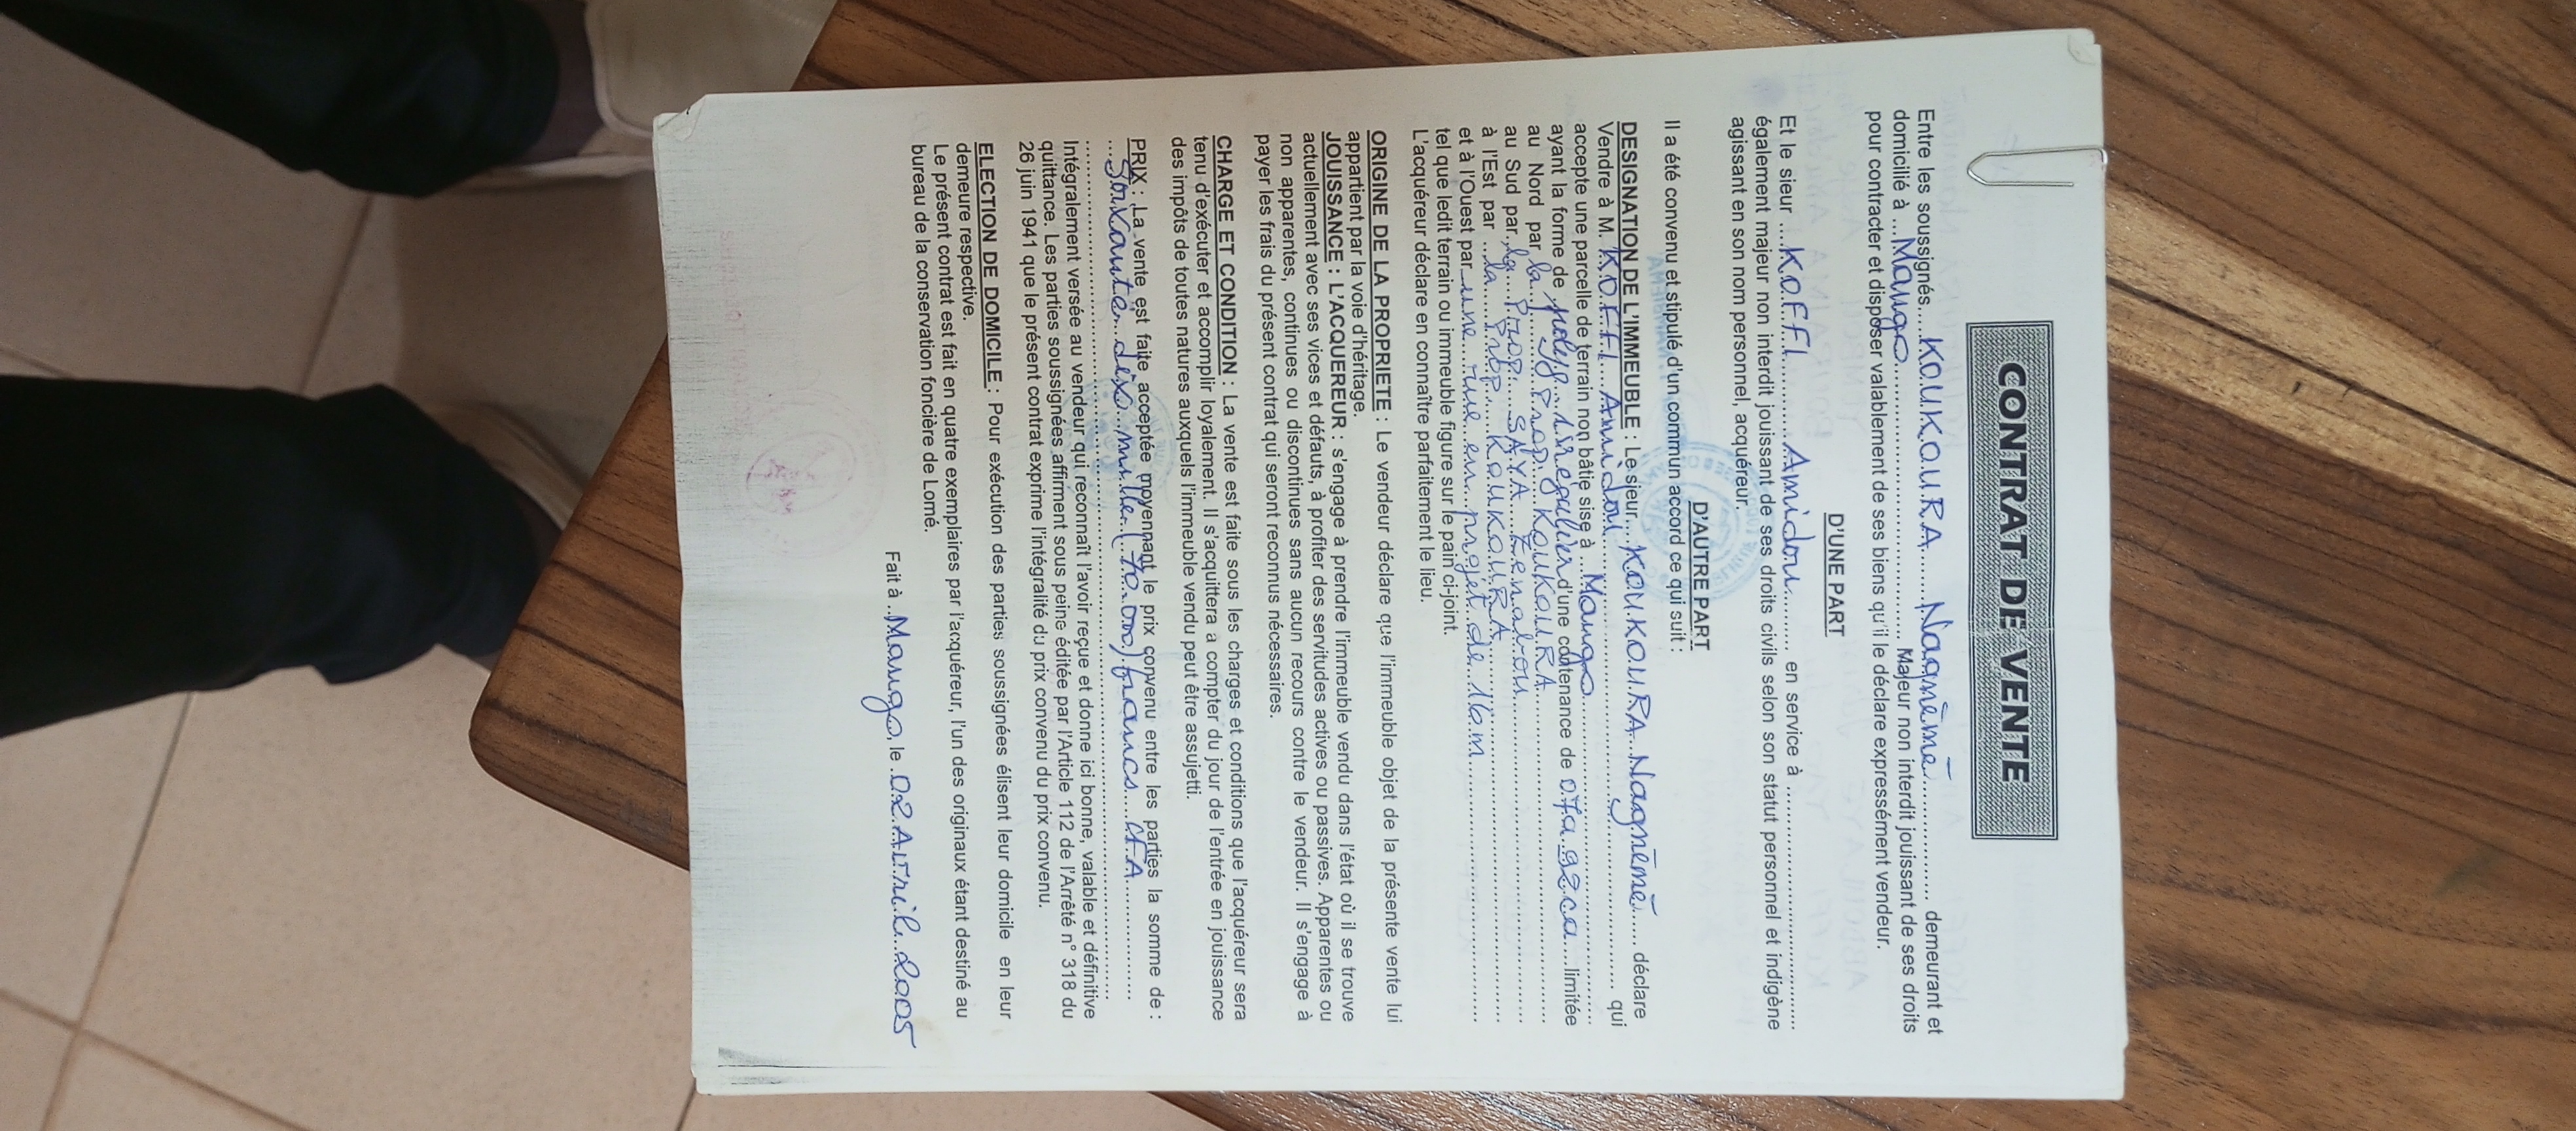 CONTRAT DE VENTE
Entre les soussignés.....KOUKOURA......Nagnême............... demeurant et
domicilié à ...Mango........................................ Majeur non interdit jouissant de ses droits
pour contracter et disposer valablement de ses biens qu'il le déclare expressément vendeur.
D'UNE PART
Et le sieur ....KOFFI............Amidou........... en service à ..........................................
également majeur non interdit jouissant de ses droits civils selon son statut personnel et indigène
agissant en son nom personnel, acquéreur.
D'AUTRE PART
Il a été convenu et stipulé d'un commun accord ce qui suit :
DESIGNATION DE L'IMMEUBLE : Le sieur....KOUKOURA...Nagnême...... déclare
Vendre à M. KOFFI...Amidou.................................................................. qui
accepte une parcelle de terrain non bâtie sise à ...Mango...........................................
ayant la forme de polyg...irrégulier d'une contenance de 07a 92ca....limitée
au Nord par la.......Prop. KOUKOURA.......................................................
au Sud par la....Prop....SAYA....................................................
à l'Est par ...la........Prop.....KOUKOURA.......................................................
et à l'Ouest par une....rue en projet de...16.m..............................................
tel que ledit terrain ou immeuble figure sur le pain ci-joint.
L'acquéreur déclare en connaître parfaitement le lieu.
ORIGINE DE LA PROPRIETE : Le vendeur déclare que l'immeuble objet de la présente vente lui
appartient par la voie d'héritage.
JOUISSANCE : L'ACQUEREUR : s'engage à prendre l'immeuble vendu dans l'état où il se trouve
actuellement avec ses vices et défauts, à profiter des servitudes actives ou passives. Apparentes ou
non apparentes, continues ou discontinues sans aucun recours contre le vendeur. Il s'engage à
payer les frais du présent contrat qui seront reconnus nécessaires.
CHARGE ET CONDITION : La vente est faite sous les charges et conditions que l'acquéreur sera
tenu d'exécuter et accomplir loyalement. Il s'acquittera à compter du jour de l'entrée en jouissance
des impôts de toutes natures auxquels l'immeuble vendu peut être assujetti.
PRIX : La vente est faite acceptée moyennant le prix convenu entre les parties la somme de :
....Soixante...dix...mille...(70.000) francs....CFA.................
................................................................................................................
Intégralement versée au vendeur qui reconnaît l'avoir reçue et donne ici bonne, valable et définitive
quittance. Les parties soussignées affirment sous peine éditée par l'Article 112 de l'Arrêté n° 318 du
26 juin 1941 que le présent contrat exprime l'intégralité du prix convenu du prix convenu.
ELECTION DE DOMICILE : Pour exécution des parties soussignées élisent leur domicile en leur
demeure respective.
Le présent contrat est fait en quatre exemplaires par l'acquéreur, l'un des originaux étant destiné au
bureau de la conservation foncière de Lomé.
Fait à ..Mango, le .02 Avril...2005